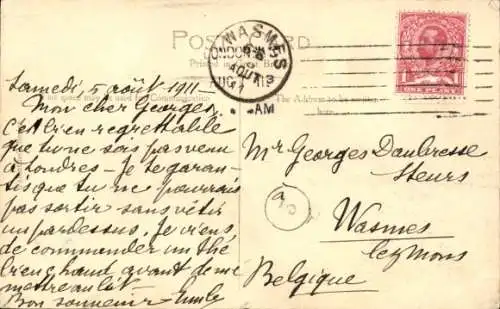 POSTCARD
WASMES
LONDON
AOUT
AUG
AM
ONE PENNY
Samedi, 5 août 1911 -
Mon cher Georges,
c'est bien regrettable
que tu ne sois pas venu
à Londres - Je te garan-
tis que tu ne pourrais
pas sortir sans vêtir
un pardessus. Je viens
de commander un thé
bien chaud avant de me
mettre au lit.
Bon souvenir - Emile
Mr Georges Daubresse
Steurs
à
Wasmes
lez Mons
Belgique
The Address to be Written
here.